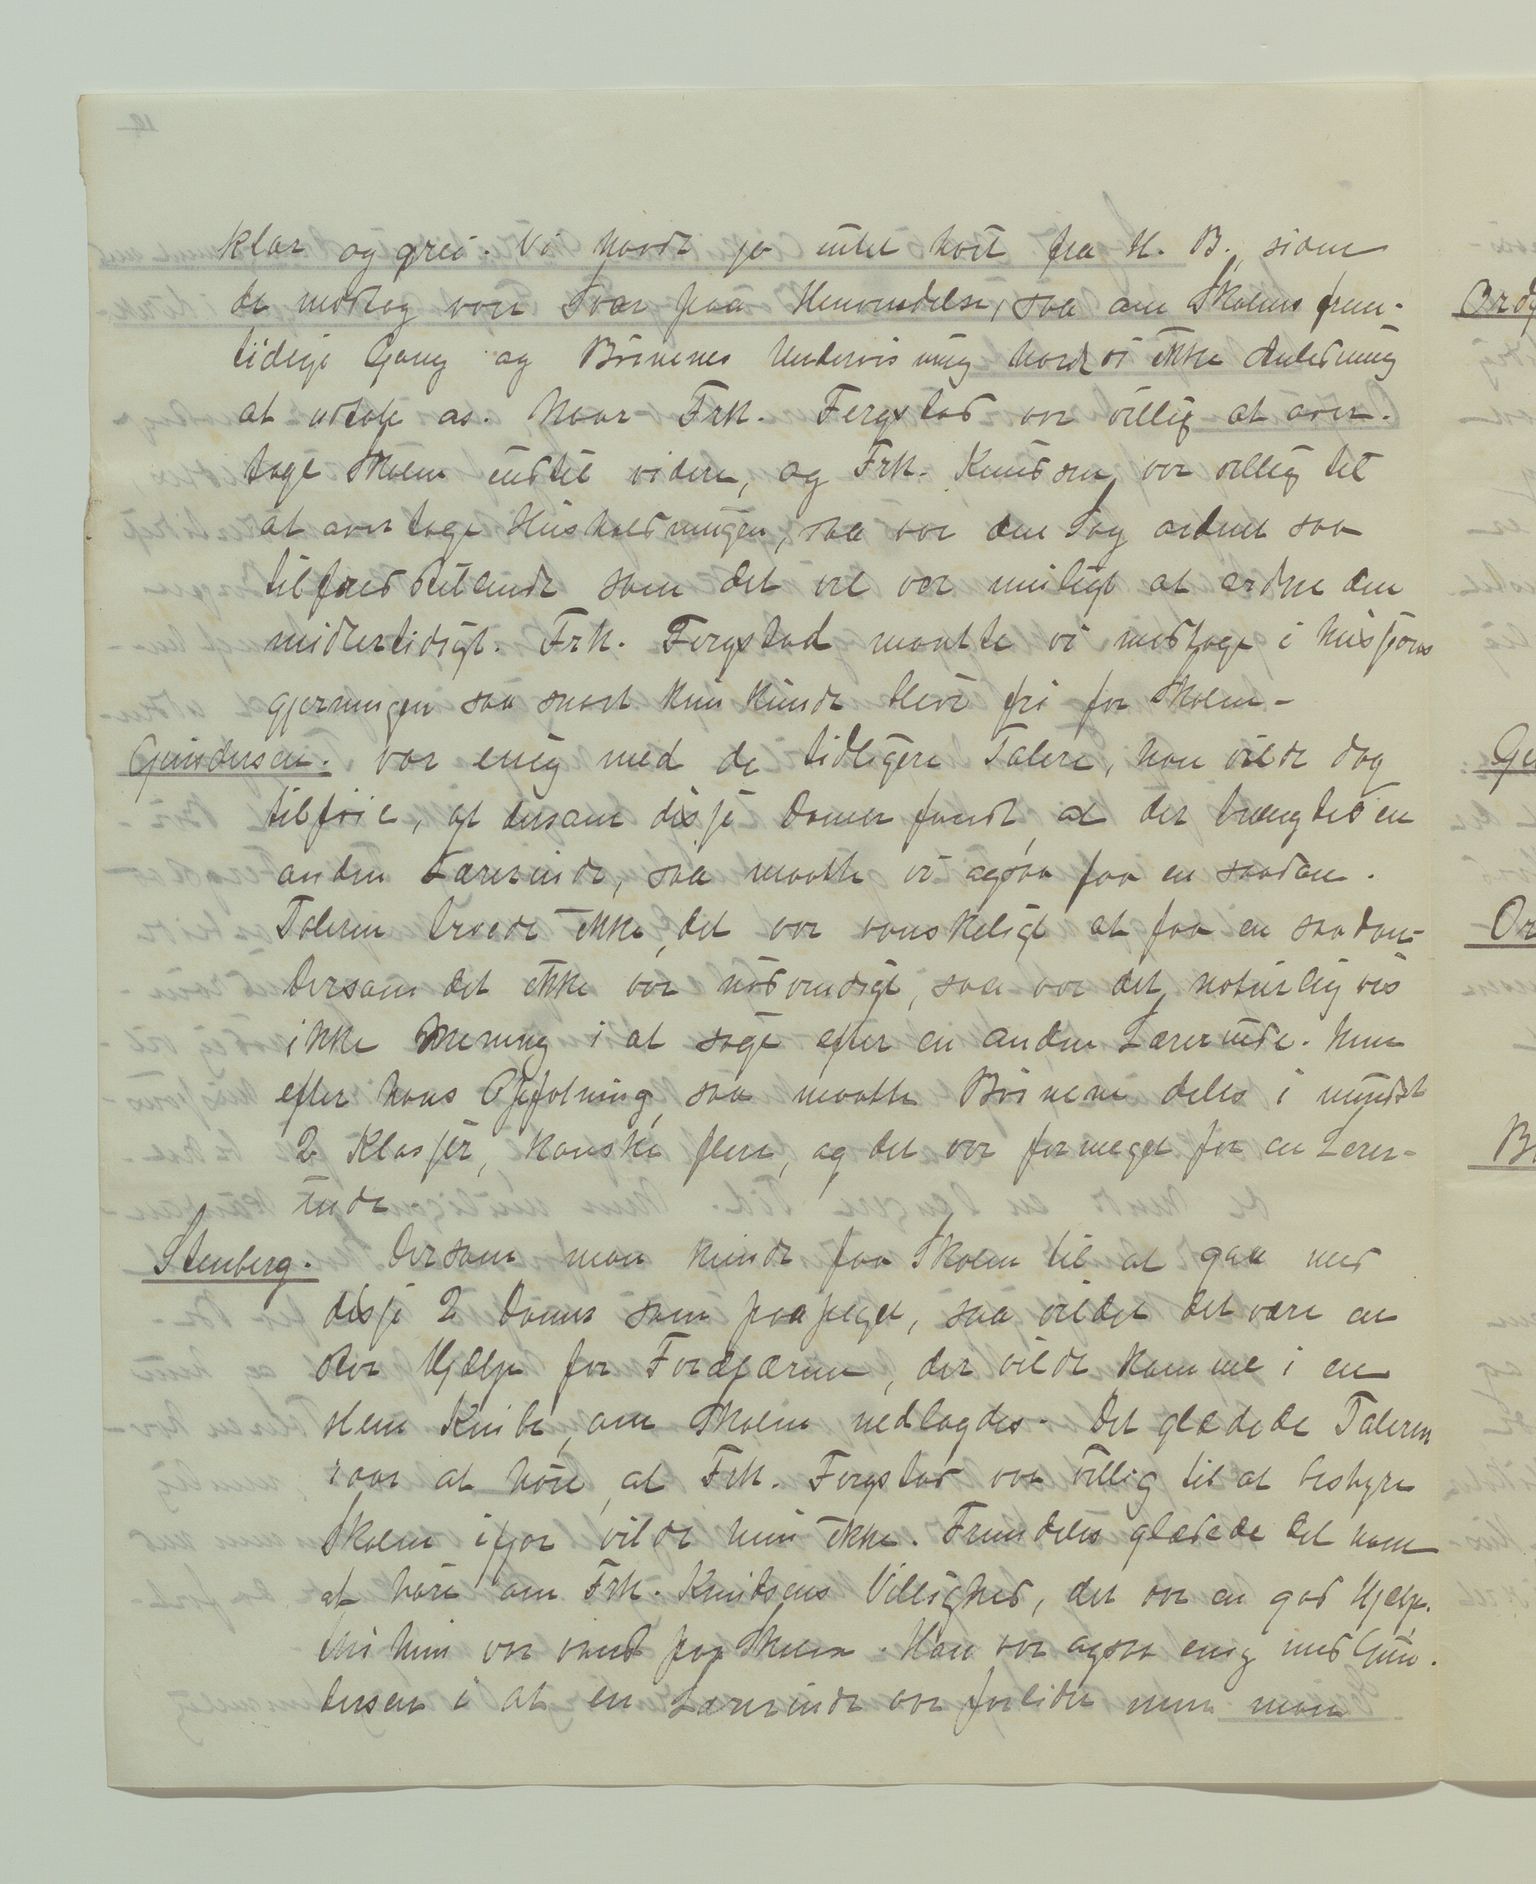 klar og grei. Vi havde jo intet hørt fra H. B. siden
de modtog vort Svar paa Henvendelse, saa om Skolens frem-
tidige Gang og Børnenes Undervisning havde vi ikke Anledning
at udtale os. Naar Frk. Fergstad var villig at over-
tage Skolen indtil videre, og Frk. Knudsen var villig til
at overtage Husholdningen, saa var den Sag ordnet saa
tilfredsstillende som det vel var muligt at ordne den
midlertidigt. Frk. Fergstad maatte vi modtage i Missions
gjerningen saa snart hun kunde blive fri for Skolen -
Gundersen. var enig med de tidligere Talere, han vilde dog
tilføie, at dersom disse Damer fandt at der trængtes en
anden Lærerinde, saa maatte vi ogsaa faa en saadan.
Taleren troede ikke det var vanskeligt at faa en saadan.
Dersom det ikke var nødvendigt, saa var det naturligvis
ikke Mening i at søge efter en anden Lærerinde. Men
efter hans Opfatning, saa maatte Børnene deles i mindst
2 Klasser, kanske flere, og det var formeget for en Lærer-
inde
Stenberg. Dersom man kunde faa Skolen til at gaa med
disse 2 Damer som paapeget, saa vilde det være en
stor Hjælp for Forældrene, der vilde komme i en
slem Knibe, om Skolen nedlagdes. Det glædede Taleren
at høre, at Frk. Fergstad var villig til at bestyre
Skolen ifjor vilde hun ikke. Fremdeles glædede det ham
at høre om Frk. Knudsens Villighed, det var en god Hjælp.
thi hun var vant paa Skolen. Han var ogsaa enig med Gun-
dersen i at en Lærerinde var forlidet men man